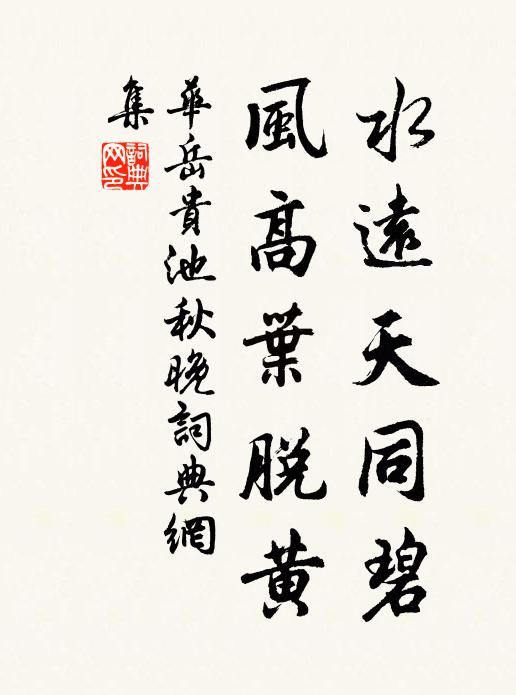 水遠天同碧
風高葉脱黃
華岳貴池秋晚詞典網
集
詞典
网印